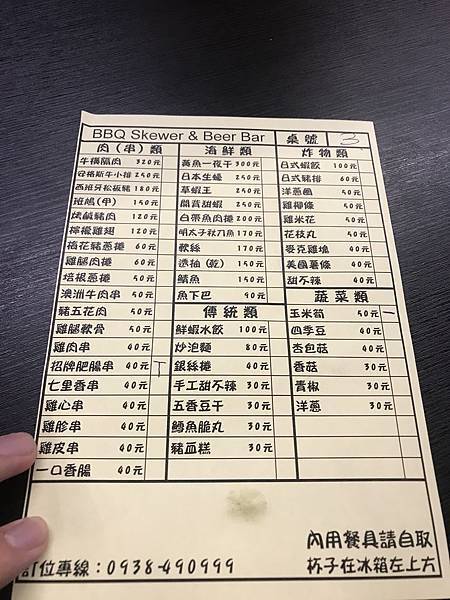 BBQ Skewer & Beer Bar 桌號 3
肉(串)類
牛橫膈肉 320元
安格斯牛小排 250元
西班牙松板豬 180元
班鴆(甲) 150元
烤鹹豬肉 120元
檸檬雞翅 120元
梅花豬蔥捲 60元
雞腿肉捲 60元
培根蔥捲 50元
澳洲牛肉串 50元
豬五花肉 50元
雞腿軟骨 50元
雞肉串 40元
招牌肥腸串 40元 丅
七里香串 40元
雞心串 40元
雞胗串 40元
雞皮串 40元
一口香腸 40元
海鮮類
黃魚一夜干 300元
日本生蠔 250元
草蝦王 250元
開賣甜蝦 250元
白帶魚肉捲 200元
明太子秋刀魚 170元
軟絲 170元
透抽(乾) 150元
鯖魚 150元
魚下巴 90元
傳統類
鮮蝦水餃 100元
炒泡麵 80元
銀絲捲 40元
手工甜不辣 30元
五香豆干 30元
鱈魚脆丸 30元
豬血糕 30元
炸物類
日式蝦餃 100元
日式豬排 60元
洋蔥圈 50元
雞柳條 50元
雞米花 50元
花枝丸 50元
麥克雞塊 40元
美國薯條 40元
甜不辣 40元
蔬菜類
玉米筍 50元 一
四季豆 40元
杏包菇 40元
香菇 30元
青椒 30元
洋蔥 30元
內用餐具請自取
訂位專線：0938-490999 杯子在冰箱左上方